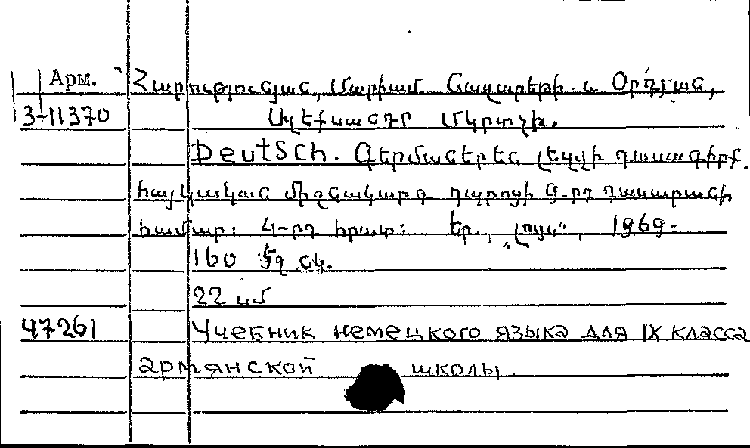 Арм. Հարությունյան, Մարիամ Նազարեթի և Օրդյան,
3-11370 Ալեքսանդր Մկրտչի.
Deutsch. Գերմաներեն լեզվի դասագիրք.
հայկական միջնակարգ դպրոցի 9-րդ դասարանի
համար: 4-րդ հրատ: Եր., „Լույս“, 1969.
160 էջ նկ.
22 սմ
47261 Учебник немецкого языка для IX класса
армянской школы.